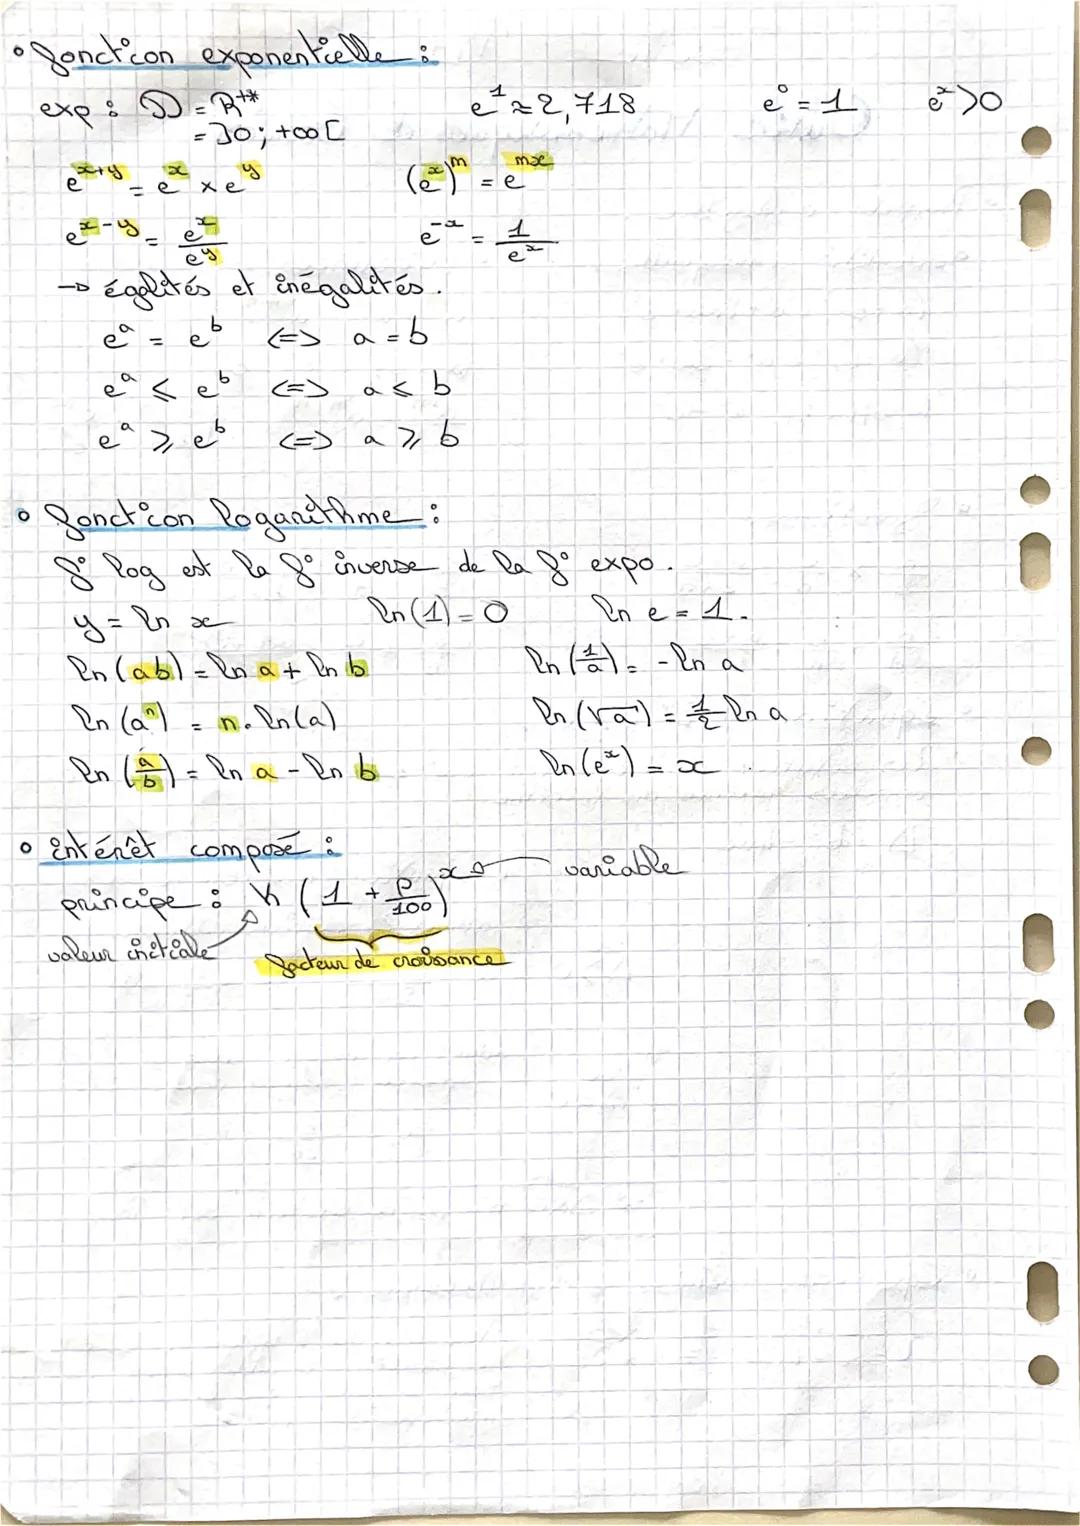 • fonction exponentielle :
exp : D = R⁺* e¹ ≈ 2,718 e⁰ = 1 eˣ > 0
= ]0 ; +∞[
eˣ⁺ʸ = eˣ × eʸ (eˣ)ᵐ = eᵐˣ
eˣ⁻ʸ = eˣ/eʸ e⁻ˣ = 1/eˣ
→ égalités et inégalités.
eᵃ = eᵇ <=> a = b
eᵃ ⩽ eᵇ <=> a ⩽ b
eᵃ ⩾ eᵇ <=> a ⩾ b
• fonction logarithme :
f° log est la f° inverse de la f° expo.
y = ln x ln(1) = 0 ln e = 1.
ln(ab) = ln a + ln b ln(1/a) = -ln a
ln(aⁿ) = n. ln(a) ln(√a) = 1/2 ln a
ln(a/b) = ln a - ln b ln(eˣ) = x
• intérêt composé :
principe : K (1 + P/100)ˣ variable
valeur initiale facteur de croissance